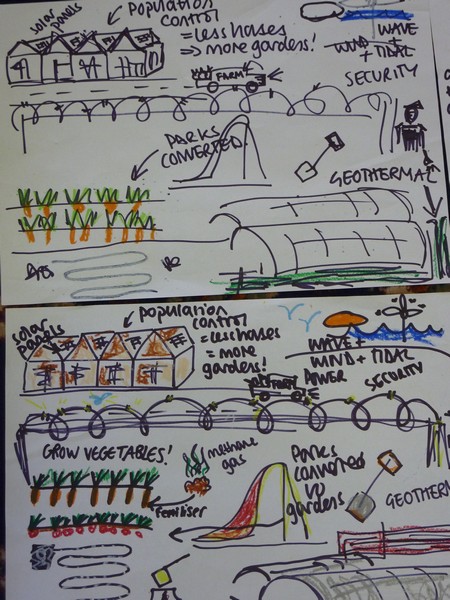 solar
panels
POPULATION
CONTROL
= LESS HOUSES
⇒ MORE GARDENS!
WAVE
+
WIND + TIDAL
SECURITY
FARM
PARKS
CONVERTED
GEOTHERMAL
solar
panels
Population
control
= less houses
= more
gardens!
WAVE +
WIND + TIDAL
POWER
SECURITY
FARM
GROW VEGETABLES!
methane
gas
fertiliser
Parks
converted
to
gardens
GEOTHERM